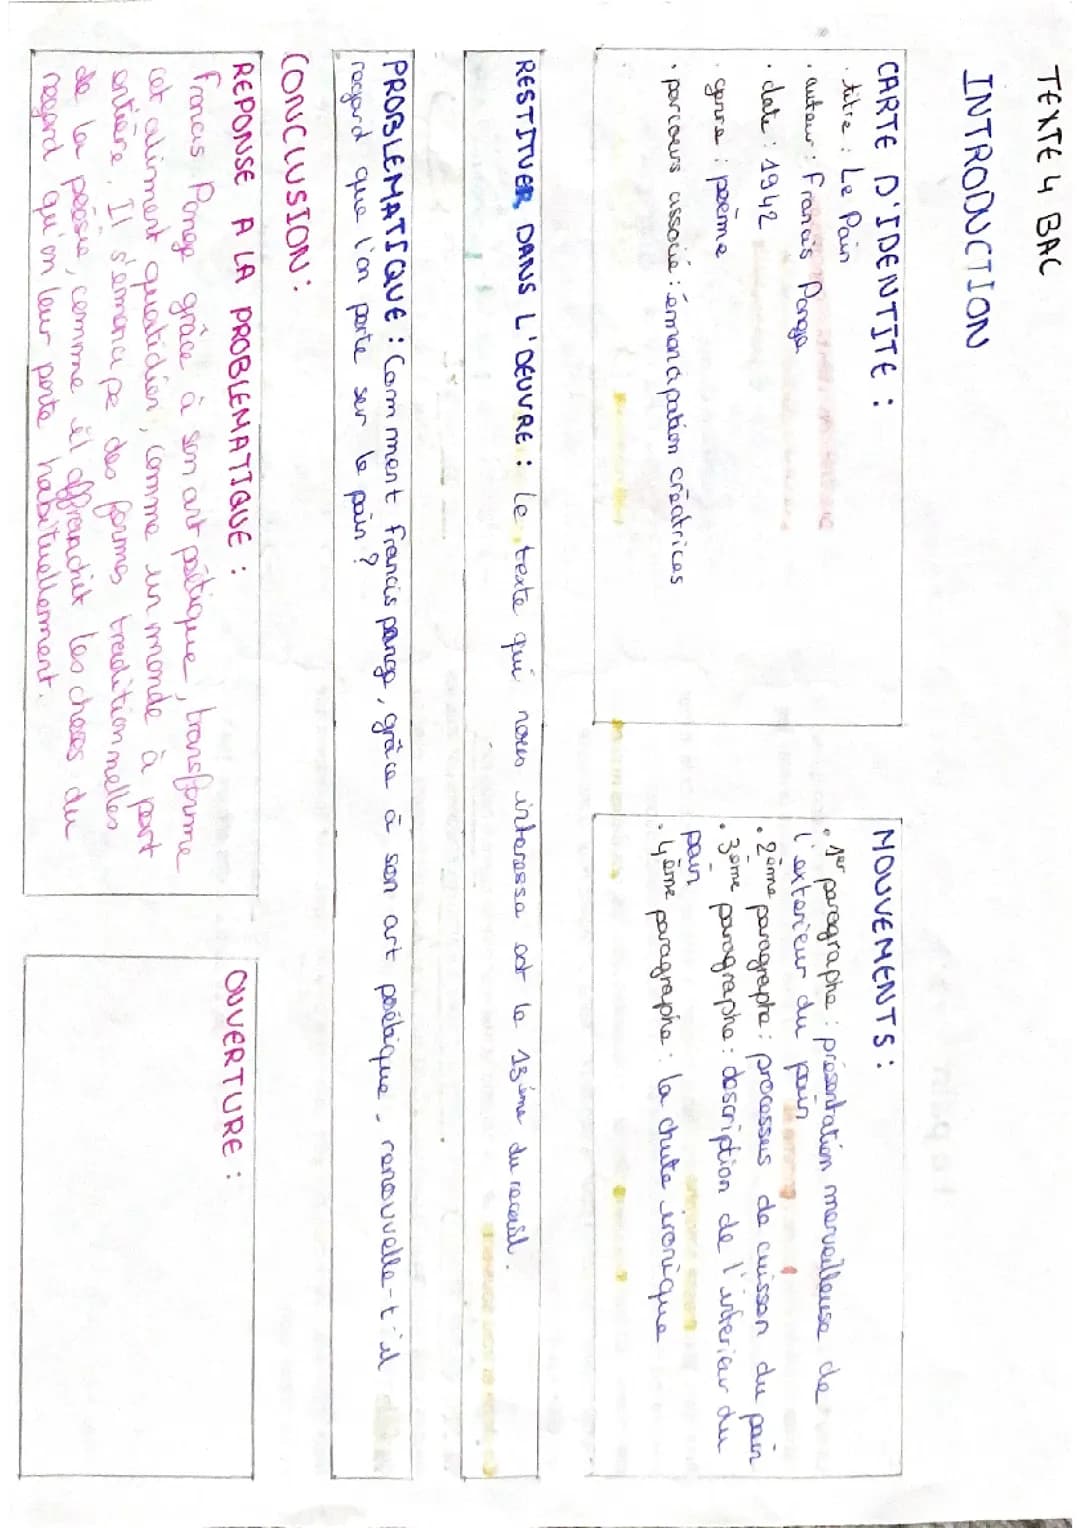 TEXTE 4 BAC
INTRODUCTION
CARTE D'IDENTITE :
· titre : Le Pain
· auteur : Francis Ponge
· date : 1942
· genre : poème
· parcours associé : émancipation créatrices
MOUVEMENTS :
· 1er paragraphe : présentation merveilleuse de
l'exterieur du pain
· 2ème paragraphe : processus de cuisson du pain
· 3ème paragraphe : description de l'interieur du
pain
· 4ème paragraphe : la chute ironique
RESTITUER DANS L'OEUVRE : Le texte qui nous interesse est le 13ème du recueil.
PROBLEMATIQUE : Comment francis ponge, grâce à son art poétique, renouvelle-t'il
regard que l'on porte sur le pain ?
CONCLUSION :
REPONSE A LA PROBLEMATIQUE :
Francis Ponge grâce à son art poétique, transforme
cet aliment quotidien, comme un monde à part
entière. Il s'émancipe des formes traditionnelles
de la poésie, comme il affranchit les choses du
regard qu'on leur porte habituellement.
OUVERTURE :